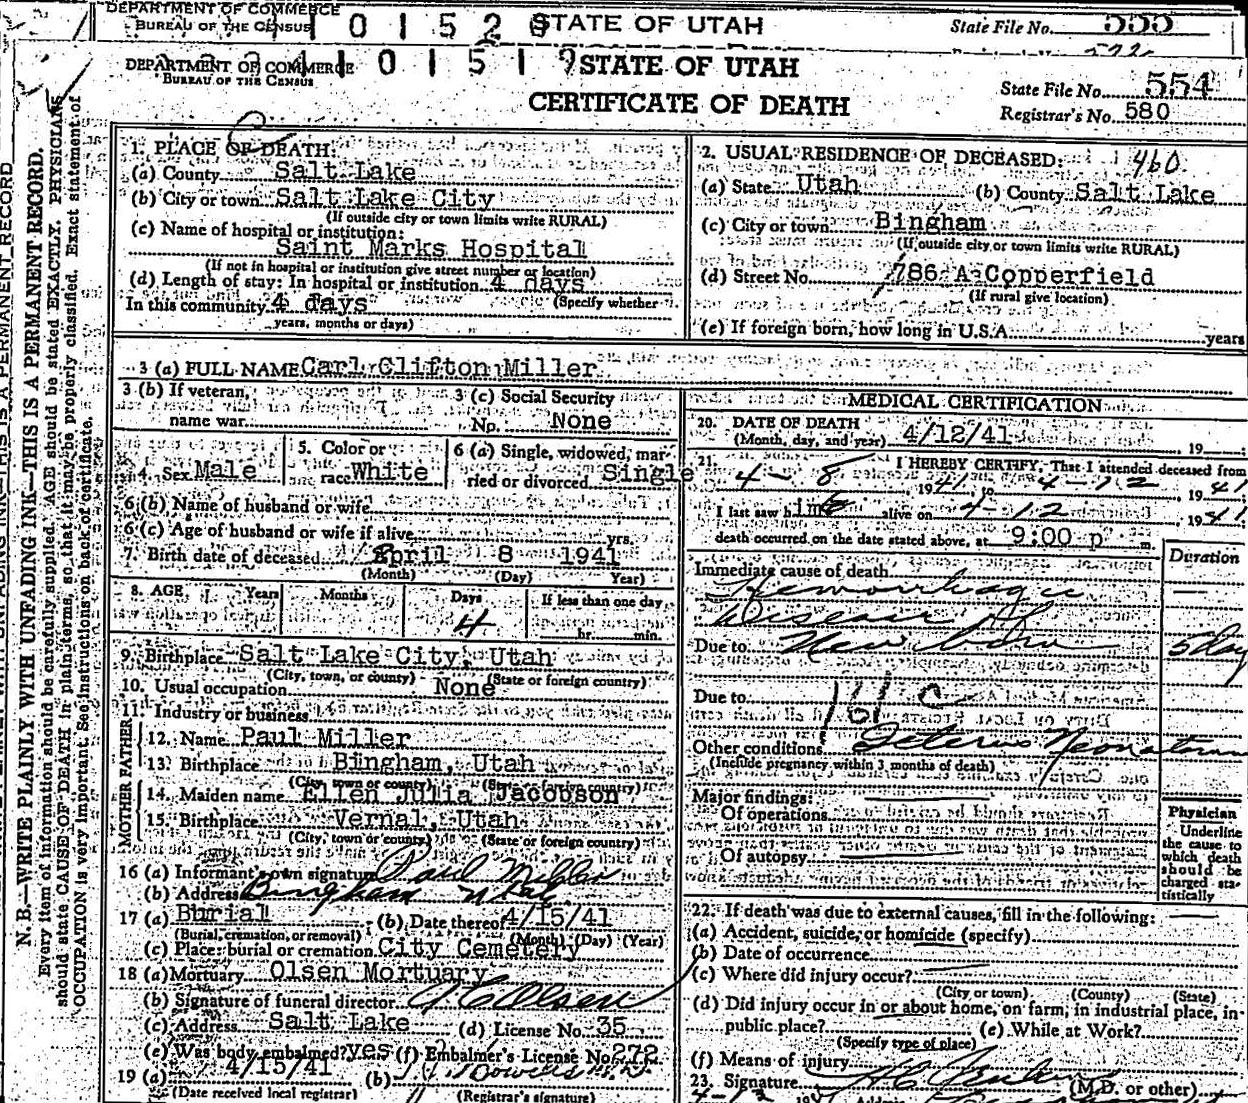 DEPARTMENT OF COMMERCE
BUREAU OF THE CENSUS
STATE OF UTAH
State File No. 555
DEPARTMENT OF COMMERCE
BUREAU OF THE CENSUS
STATE OF UTAH
CERTIFICATE OF DEATH
State File No. 554
Registrar's No. 580
N. B.—WRITE PLAINLY WITH UNFADING INK—THIS IS A PERMANENT RECORD.
Every item of information should be carefully supplied. AGE should be stated EXACTLY. PHYSICIANS
should state CAUSE OF DEATH in plain terms, so that it may be properly classified. Exact statement of
OCCUPATION is very important. See instructions on back of certificate.
1. PLACE OF DEATH:
(a) County Salt Lake
(b) City or town Salt Lake City
(If outside city or town limits write RURAL)
(c) Name of hospital or institution:
Saint Marks Hospital
(If not in hospital or institution give street number or location)
(d) Length of stay: In hospital or institution 4 days
In this community 4 days (Specify whether
years, months or days)
2. USUAL RESIDENCE OF DECEASED: 460
(a) State Utah (b) County Salt Lake
(c) City or town Bingham
(If outside city or town limits write RURAL)
(d) Street No. 786 A Copperfield
(If rural give location)
(e) If foreign born, how long in U.S.A. years
3 (a) FULL NAME Carl Clifton Miller
3 (b) If veteran,
name war
3 (c) Social Security
No. None
4. Sex Male
5. Color or
race White
6 (a) Single, widowed, mar-
ried or divorced Single
6 (b) Name of husband or wife
6 (c) Age of husband or wife if alive yrs.
7. Birth date of deceased April 8 1941
(Month) (Day) Year)
8. AGE Years Months Days If less than one day
4 hr. min.
9. Birthplace Salt Lake City, Utah
(City, town, or county) (State or foreign country)
10. Usual occupation None
11. Industry or business
FATHER
12. Name Paul Miller
13. Birthplace Bingham, Utah
(City, town or county) (State or foreign country)
MOTHER
14. Maiden name Ellen Julia Jacobson
15. Birthplace Vernal, Utah
(City, town or county) (State or foreign country)
16 (a) Informant's own signature Paul Miller
(b) Address Bingham Utah
17 (a) Burial (b) Date thereof 4/15/41
(Burial, cremation, or removal) (Month) (Day) (Year)
(c) Place: burial or cremation City Cemetery
18 (a) Mortuary Olsen Mortuary
(b) Signature of funeral director
(c) Address Salt Lake (d) License No. 35
(e) Was body embalmed? yes (f) Embalmer's License No. 272
19 (a) 4/15/41 (b)
(Date received local registrar) (Registrar's signature)
MEDICAL CERTIFICATION
20. DATE OF DEATH
(Month, day, and year) 4/12/41 19
21. I HEREBY CERTIFY, That I attended deceased from
4 - 8, 1941 to 4-12, 1941
I last saw him alive on 4-12, 1941
death occurred on the date stated above, at 9:00 p m.
Duration
Immediate cause of death
Hemorrhagic
Disease of
Due to New born 5 day
Due to 161 c
Other conditions Icterus Neonatorum
(Include pregnancy within 3 months of death)
Major findings:
Of operations
Of autopsy
Physician
Underline
the cause to
which death
should be
charged sta-
tistically
22. If death was due to external causes, fill in the following:
(a) Accident, suicide, or homicide (specify)
(b) Date of occurrence
(c) Where did injury occur?
(City or town) (County) (State)
(d) Did injury occur in or about home, on farm, in industrial place, in
public place? (e) While at Work?
(Specify type of place)
(f) Means of injury
23. Signature (M.D. or other)